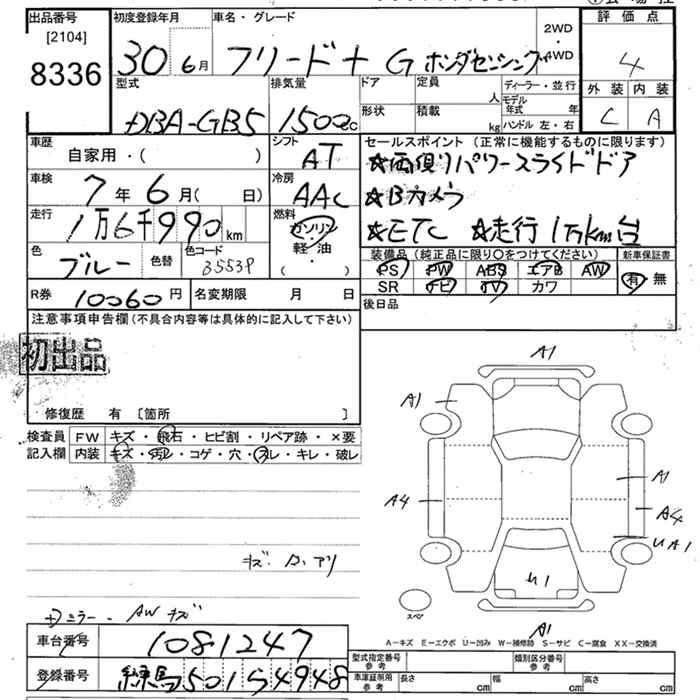 出品番号
[2104]
8336
初度登録年月
30 6月
車名・グレード
フリード+ G ホンダセンシング
2WD
4WD
評価点
4
外装 内装
C A
型式
DBA-GB5
排気量
1500cc
ドア
形状
定員
人
積載
kg
ディーラー・並行
モデル年式 年
ハンドル 左・右
車歴
自家用・( )
シフト
AT
車検
7年 6月( 日)
冷房
AAC
走行
1万6千990km
燃料
ガソリン
軽・油
( ・ )
色
ブルー
色替
色コード
B553P
セールスポイント(正常に機能するものに限ります)
☆両側パワースライドドア
☆Bカメラ
☆ETC ☆走行1万km台
装備品(純正品に限り○をつけてください)
PS PW ABS エアB AW
SR ナビ TV カワ
新車保証書
有 無
R券 10060円
名変期限 月 日
後日品
注意事項申告欄(不具合内容等は具体的に記入して下さい)
初出品
修復歴 有 [箇所 ]
検査員
記入欄
FW キズ・飛石・ヒビ割・リペア跡・×要
内装 キズ・汚レ・コゲ・穴・スレ・キレ・破レ
A1
A1
A4
A1
A4
UA1
U1
A1
スペア
ミラー・AWキズ
A-キズ E-エクボ U-凹み W-補修跡 S-サビ C-腐食 XX-交換済
車台番号
1081247
登録番号
練馬501 54948
型式指定番号
参考
類別区分番号
参考
車庫証明用
参考
長さ cm
幅 cm
高さ cm